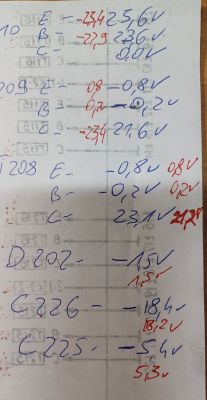 10 E = -23,4 25,6v
B = -22,9 23,6v
C = 0,0v
209 E = 0,8 -0,8v
B = 0,2 -0,2v
C = -23,4 21,6v
T208 E - -0,8v 0,8v
B - -0,2v 0,2v
C = 23,1v
D202 - -1,5v
1,5v
C226 - -18,4v
18,2v
C225 - -5,4v
5,3v